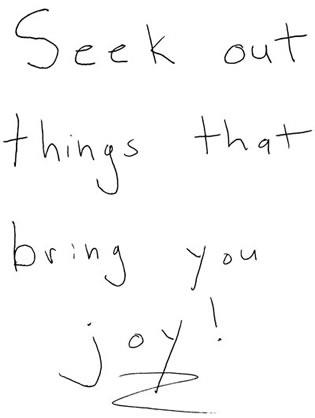 Seek out
things that
bring you
joy!